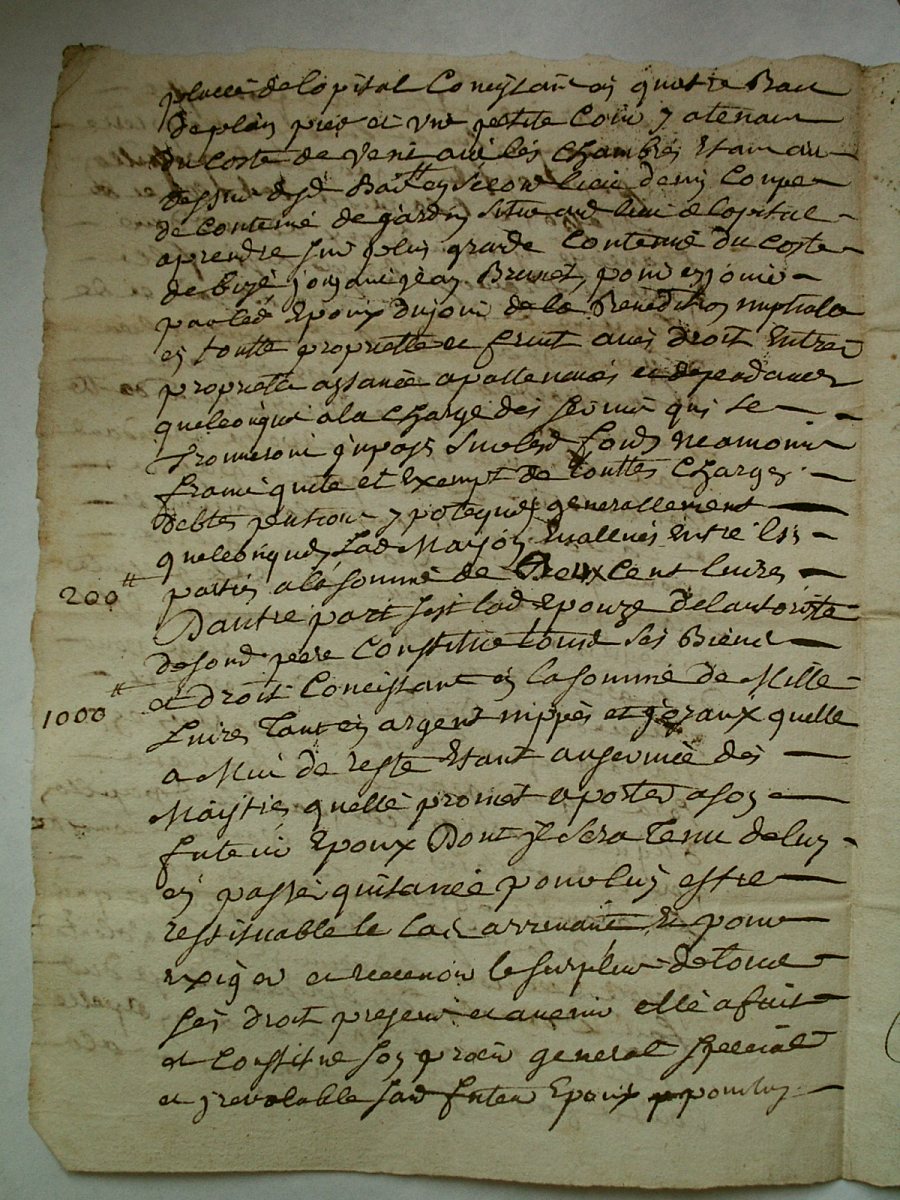 place de lopital Concistan en quatre Bau
de plan pied et une petite Cour y atenan
du coste de vent avec les chambres Etam au
dessus desd Bau
de contenue de jardin situe aud lieu de lopital
a prendre sur plus grande contenue du coste
de bize joignant jean Brunet pour en jouir
par led Epoux du jour de la Benediction nuptiale
en toutte propriette et fruit avec droit Entrée
propriette aysance apartenances et dependances
quelconque a la charge des servis qui se
trouveront impayé sur lesd fonds neamoins
franc quite et Exempt de touttes charges
debtes pention ypoteques generallement
quelconques Lad Mayson Evalluée Entre les
200tt parties a la somme de Deux Cent livres
Dautre part sest lad Epouze de lautorité
de sond pere Constitué tous ses Biens
et droit Concistant en la somme de Mille
1000tt Livres Tant en argent nippes et joyaux quelle
a Mui de reste Etant au service des
Maistres quelle promet aporter a son
futeur Epoux Dont il sera Tenu de luy
en passer quitance pour luy estre
restituable le cas arrivant Et pour
Exiger et recevoir le surplus de tous
ses droit presens et avenir elle a fait
et Constitue son procur general special
et irevolable sond futeur Epoux pour luy